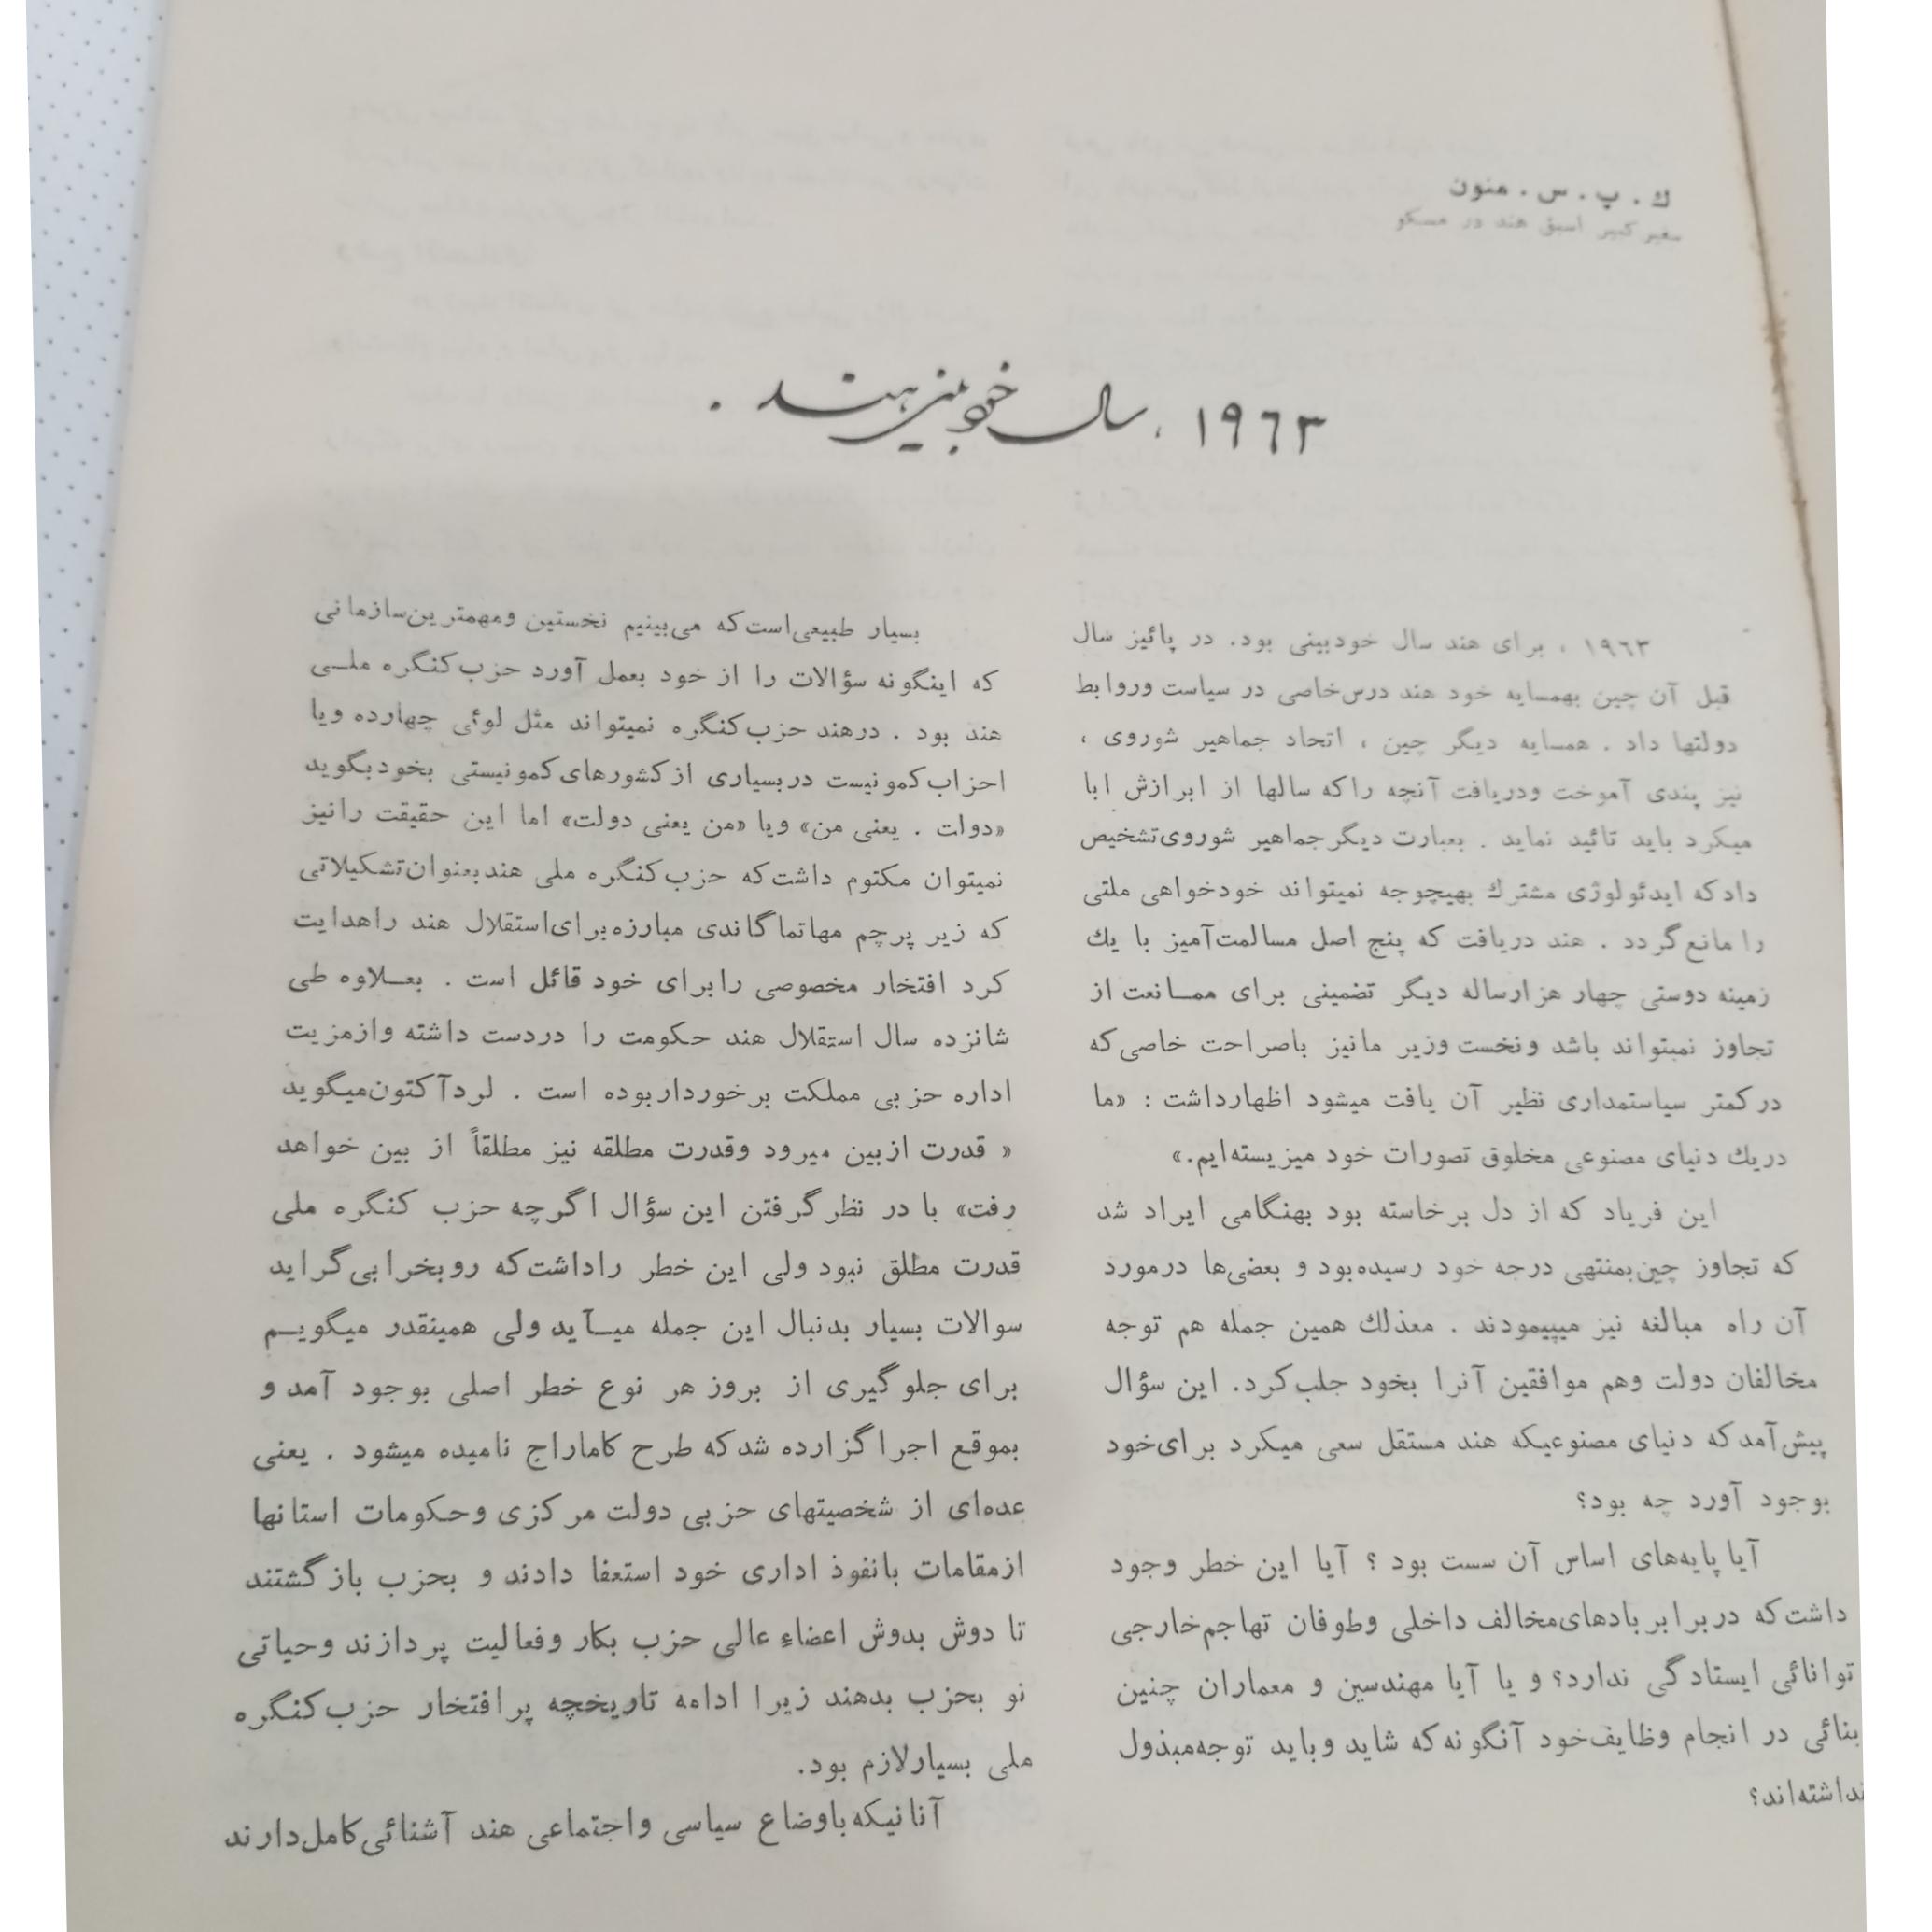 ك . پ . س . منون
سفیر کبیر اسبق هند در مسکو
۱۹۶۳ ، سال خودبینی هند .
۱۹۶۳ ، برای هند سال خودبینی بود. در پائیز سال
قبل آن چین بهمسایه خود هند درس‌خاصی در سیاست وروابط
دولتها داد . همسایه دیگر چین ، اتحاد جماهیر شوروی ،
نیز پندی آموخت ودریافت آنچه راکه سالها از ابرازش ابا
میکرد باید تائید نماید . بعبارت دیگر جماهیر شوروی تشخیص
داد که ایدئولوژی مشترك بهیچوجه نمیتواند خودخواهی ملتی
را مانع گردد . هند دریافت که پنج اصل مسالمت‌آمیز با یك
زمینه دوستی چهار هزارساله دیگر تضمینی برای ممانعت از
تجاوز نمیتواند باشد ونخست وزیر مانیز باصراحت خاصی که
در کمتر سیاستمداری نظیر آن یافت میشود اظهارداشت : «ما
دریك دنیای مصنوعی مخلوق تصورات خود میزیسته‌ایم.»
این فریاد که از دل برخاسته بود بهنگامی ایراد شد
که تجاوز چین‌بمنتهی درجه خود رسیده‌بود و بعضی‌ها درمورد
آن راه مبالغه نیز میپیمودند . معذلك همین جمله هم توجه
مخالفان دولت وهم موافقین آنرا بخود جلب‌کرد. این سؤال
پیش‌آمد که دنیای مصنوعیکه هند مستقل سعی میکرد برای‌خود
بوجود آورد چه بود؟
آیا پایه‌های اساس آن سست بود ؟ آیا این خطر وجود
داشت که دربرابر بادهای‌مخالف داخلی وطوفان تهاجم‌خارجی
توانائی ایستادگی ندارد؟ و یا آیا مهندسین و معماران چنین
بنائی در انجام وظایف‌خود آنگونه‌که شاید و باید توجه‌مبذول
نداشته‌اند؟
بسیار طبیعی‌است که می‌بینیم نخستین ومهمترین‌سازمانی
که اینگونه سؤالات را از خود بعمل آورد حزب کنگره ملـی
هند بود . درهند حزب کنگره نمیتواند مثل لوئی چهارده ویا
احزاب کمونیست در بسیاری از کشورهای کمونیستی بخود بگوید
«دولت . یعنی من» ویا «من یعنی دولت» اما این حقیقت رانیز
نمیتوان مکتوم داشت که حزب کنگره ملی هند بعنوان تشکیلاتی
که زیر پرچم مهاتما گاندی مبارزه برای‌استقلال هند راهدایت
کرد افتخار مخصوصی رابرای خود قائل است . بعـلاوه طی
شانزده سال استقلال هند حکومت را دردست داشته وازمزیت
اداره حزبی مملکت برخوردار بوده است . لرد آکتون‌میگوید
« قدرت ازبین میرود وقدرت مطلقه نیز مطلقاً از بین خواهد
رفت» با در نظر گرفتن این سؤال اگرچه حزب کنگره ملی
قدرت مطلق نبود ولی این خطر راداشت که روبخرابی گراید
سوالات بسیار بدنبال این جمله میـآید ولی همینقدر میگویـم
برای جلوگیری از بروز هر نوع خطر اصلی بوجود آمد و
بموقع اجرا گزارده شد که طرح کاماراج نامیده میشود . یعنی
عده‌ای از شخصیتهای حزبی دولت مرکزی وحکومات استانها
ازمقامات بانفوذ اداری خود استعفا دادند و بحزب بازگشتند
تا دوش بدوش اعضاء عالی حزب بکار وفعالیت پردازند وحیاتی
نو بحزب بدهند زیرا ادامه تاریخچه پرافتخار حزب کنگره
ملی بسیارلازم بود.
آنانیکه باوضاع سیاسی واجتماعی هند آشنائی کامل دارند